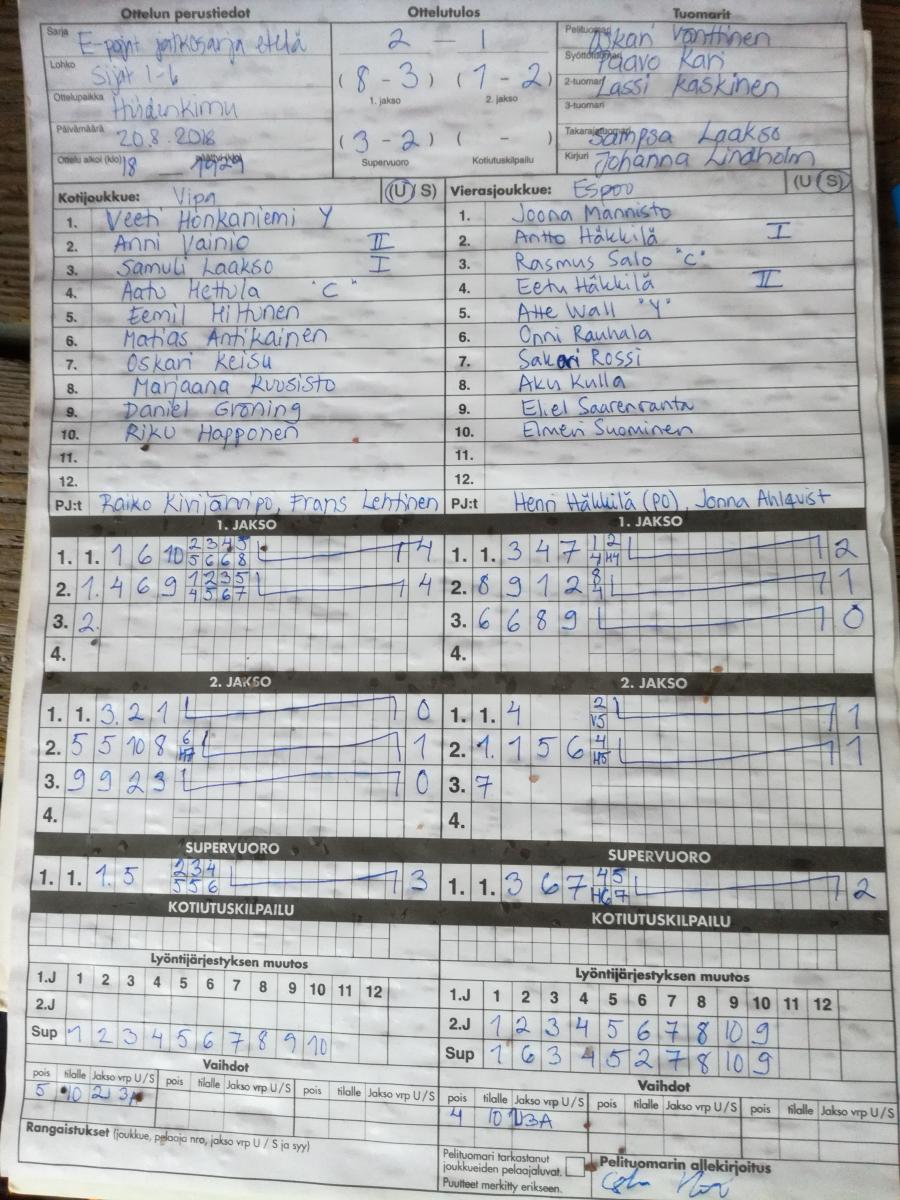 Ottelun perustiedot
Sarja E-pojat jatkosarja etelä
Lohko Sijat 1-6
Ottelupaikka Hiidenkirnu
Päivämäärä 20.8.2018
Ottelu alkoi (klo) 18 1929
Ottelutulos
2 - 1
( 8 - 3 ) ( 1 - 2 )
1. jakso 2. jakso
( 3 - 2 ) ( - )
Supervuoro Kotiutuskilpailu
Tuomarit
Pelituomari Oskari Vänttinen
Syöttötuomari Paavo Kari
2-tuomari Lassi Kaskinen
3-tuomari
Takarajatuomari Sampsa Laakso
Kirjuri Johanna Lindholm
Kotijoukkue: Vipa (U/S)
1. Veeti Honkaniemi Y
2. Anni Vainio II
3. Samuli Laakso I
4. Aatu Hettula "C"
5. Eemil Hiltunen
6. Matias Antikainen
7. Oskari Keisu
8. Marjaana Kuusisto
9. Daniel Gröning
10. Riku Happonen
11.
12.
PJ:t Raiko Kivijärvi, Frans Lehtinen
Vierasjoukkue: Espoo (U/S)
1. Joona Männistö
2. Antto Häkkilä I
3. Rasmus Salo "C"
4. Eetu Häkkilä II
5. Atte Wall "Y"
6. Onni Rauhala
7. Sakari Rossi
8. Aku Kulla
9. Eliel Saarenranta
10. Elmeri Suominen
11.
12.
PJ:t Henri Häkkilä (PO), Jonna Ahlqvist
1. JAKSO
1. 1. 1 6 10 2 3 4 5 4
5 6 6 8
2. 1. 4 6 9 1 2 3 5 4
4 5 6 7
3. 2.
4.
1. JAKSO
1. 1. 3 4 7 1 2 2
4 H4
2. 8 9 1 2 8 1
4
3. 6 6 8 9 0
4.
2. JAKSO
1. 1. 3 2 1 0
2. 5 5 10 8 6 1
3. 9 9 2 3 0
4.
2. JAKSO
1. 1. 4 2 1
V5
2. 1. 1 5 6 4 1
H5
3. 7
4.
SUPERVUORO
1. 1. 1. 5 2 3 4 3
5 5 6
SUPERVUORO
1. 1. 3 6 7 4 5 2
H6 7
KOTIUTUSKILPAILU
KOTIUTUSKILPAILU
Lyöntijärjestyksen muutos
1.J 1 2 3 4 5 6 7 8 9 10 11 12
2.J
Sup 1 2 3 4 5 6 7 8 9 10
Lyöntijärjestyksen muutos
1.J 1 2 3 4 5 6 7 8 9 10 11 12
2.J 1 2 3 4 5 6 7 8 10 9
Sup 1 6 3 4 5 2 7 8 10 9
Vaihdot
pois tilalle Jakso vrp U/S pois tilalle Jakso vrp U/S pois tilalle Jakso vrp U/S
5 10 2J 3A
Vaihdot
pois tilalle Jakso vrp U/S pois tilalle Jakso vrp U/S pois tilalle Jakso vrp U/S
4 10 3A
Rangaistukset (joukkue, pelaaja nro, jakso vrp U / S ja syy)
Pelituomari tarkastanut
joukkueiden pelaajaluvat.
Puutteet merkitty erikseen.
Pelituomarin allekirjoitus